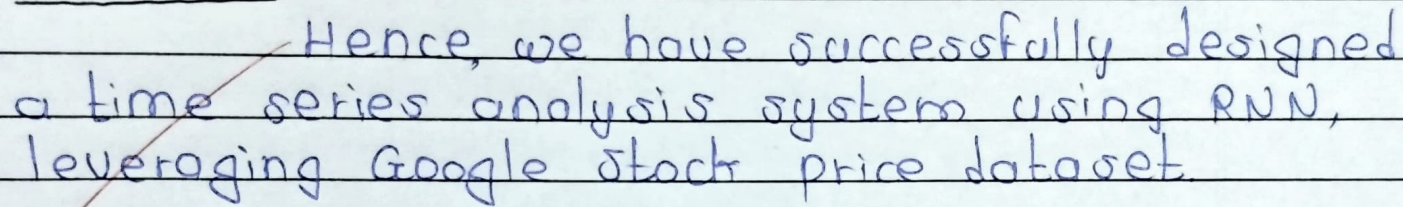 Hence, we have successfully designed
a time series analysis system using RNN,
leveraging Google Stock price dataset.